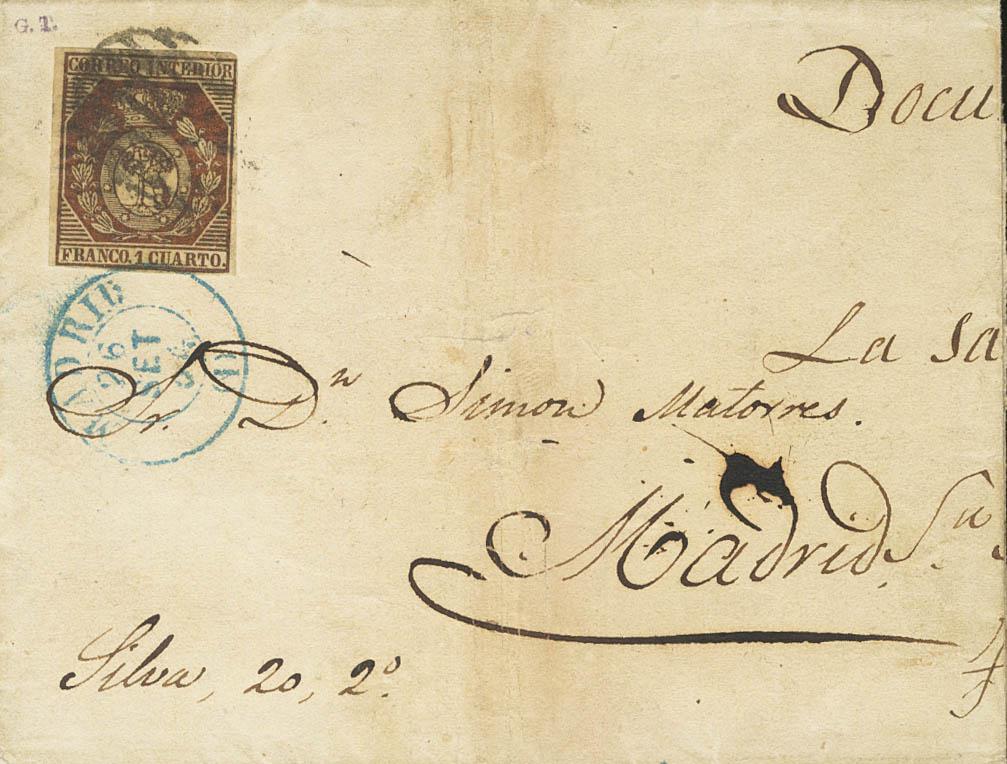 G. T.
CORREO INTERIOR
FRANCO. 1 CUARTO.
Docu
MADRID
26
SET
La sa
Sr. Dn. Simon Matorres.
Madrid.
Silva, 20, 2º.